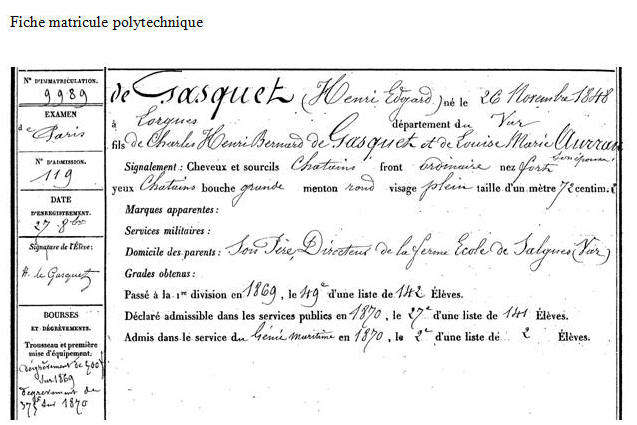 Fiche matricule polytechnique
N° D'IMMATRICULATION.
9989
EXAMEN
de Paris
N° D'ADMISSION.
119
DATE
D'ENREGISTREMENT.
27 8bre
Signature de l'Élève:
H. de Gasquet
BOURSES
ET DÉGRÈVEMENTS.
Trousseau et première
mise d'équipement.
dégrèvement de 400f
sur 1869
dégrèvement de
375f sur 1870
de Gasquet (Henri Edgard) né le 26 Novembre 1848
à Lorgues département du Var
fils de Charles Henri Bernard de Gasquet et de Louise Marie Auvran
son épouse
Signalement : Cheveux et sourcils Chatains front ordinaire nez fort
yeux Chatains bouche grande menton rond visage plein taille d'un mètre 72 centim.
Marques apparentes :
Services militaires :
Domicile des parents : Son Père, Directeur de la ferme Ecole de Salgues (Var)
Grades obtenus :
Passé à la 1re division en 1869, le 49e d'une liste de 142 Élèves.
Déclaré admissible dans les services publics en 1870, le 27e d'une liste de 141 Élèves.
Admis dans le service du Génie maritime en 1870, le 2e d'une liste de 2 Élèves.